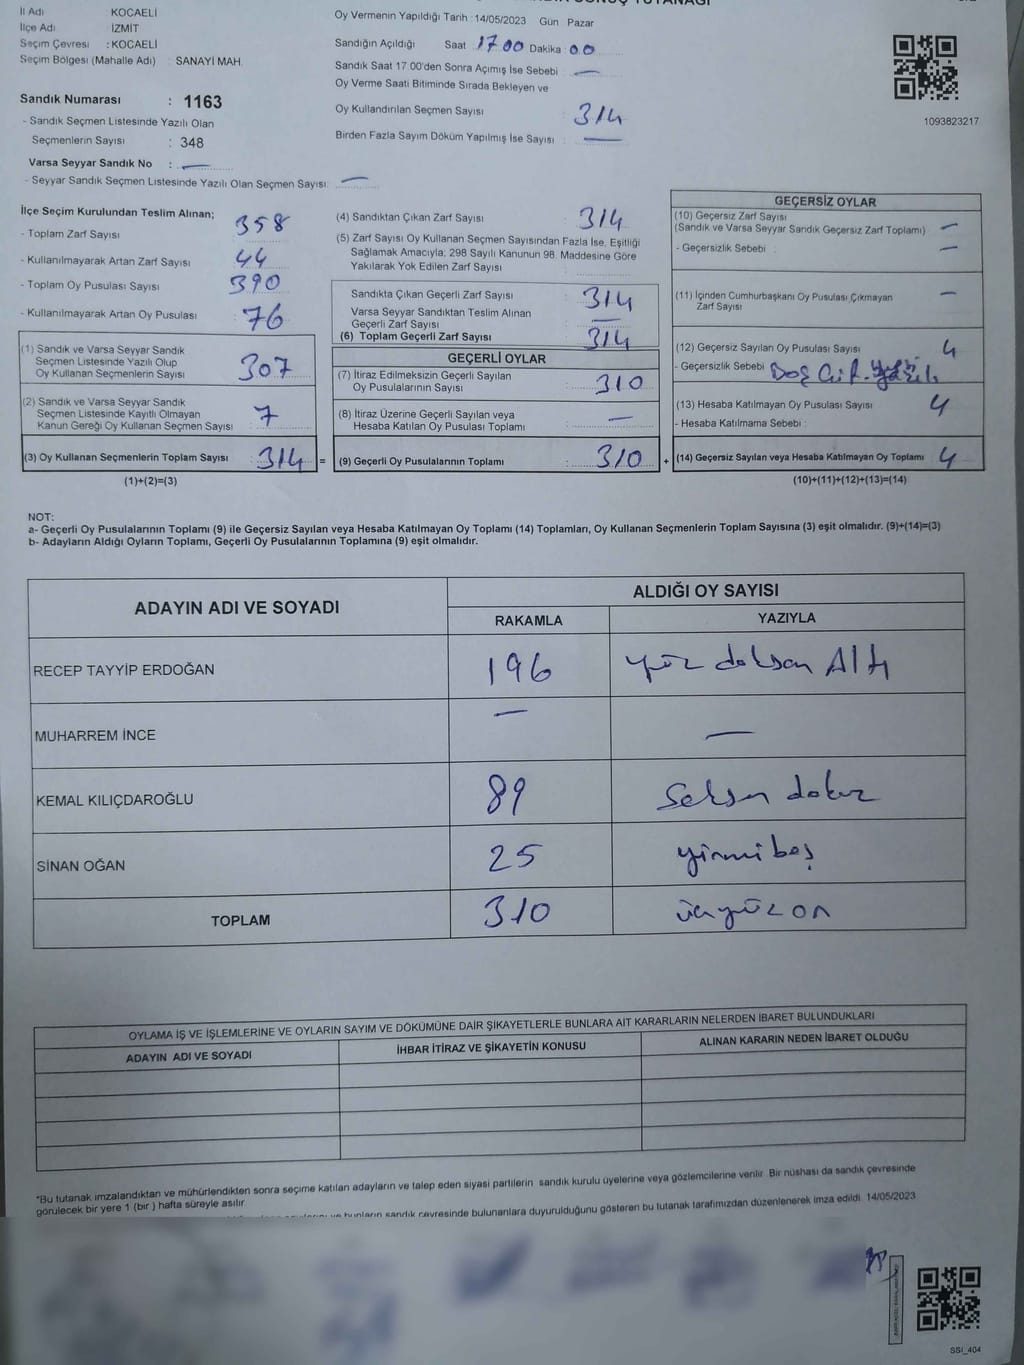 İl Adı KOCAELİ
İlçe Adı İZMİT
Seçim Çevresi : KOCAELİ
Seçim Bölgesi (Mahalle Adı) : SANAYİ MAH.
Sandık Numarası : 1163
- Sandık Seçmen Listesinde Yazılı Olan
Seçmenlerin Sayısı : 348
Varsa Seyyar Sandık No : —
- Seyyar Sandık Seçmen Listesinde Yazılı Olan Seçmen Sayısı: —
Oy Vermenin Yapıldığı Tarih : 14/05/2023 Gün Pazar
Sandığın Açıldığı Saat 17 00 Dakika : 00
Sandık Saat 17.00'den Sonra Açmış İse Sebebi : —
Oy Verme Saati Bitiminde Sırada Bekleyen ve
Oy Kullandırılan Seçmen Sayısı : 314
Birden Fazla Sayım Döküm Yapılmış İse Sayısı : —
1093823217
İlçe Seçim Kurulundan Teslim Alınan;
- Toplam Zarf Sayısı : 358
- Kullanılmayarak Artan Zarf Sayısı : 44
- Toplam Oy Pusulası Sayısı : 390
- Kullanılmayarak Artan Oy Pusulası : 76
(1) Sandık ve Varsa Seyyar Sandık
Seçmen Listesinde Yazılı Olup
Oy Kullanan Seçmenlerin Sayısı : 307
(2) Sandık ve Varsa Seyyar Sandık
Seçmen Listesinde Kayıtlı Olmayan
Kanun Gereği Oy Kullanan Seçmen Sayısı : 7
(3) Oy Kullanan Seçmenlerin Toplam Sayısı : 314 =
(1)+(2)=(3)
(4) Sandıktan Çıkan Zarf Sayısı : 314
(5) Zarf Sayısı Oy Kullanan Seçmen Sayısından Fazla İse, Eşitliği
Sağlamak Amacıyla; 298 Sayılı Kanunun 98. Maddesine Göre
Yakılarak Yok Edilen Zarf Sayısı :
Sandıkta Çıkan Geçerli Zarf Sayısı : 314
Varsa Seyyar Sandıktan Teslim Alınan
Geçerli Zarf Sayısı : —
(6) Toplam Geçerli Zarf Sayısı : 314
GEÇERLİ OYLAR
(7) İtiraz Edilmeksizin Geçerli Sayılan
Oy Pusulalarının Sayısı : 310
(8) İtiraz Üzerine Geçerli Sayılan veya
Hesaba Katılan Oy Pusulası Toplamı : —
(9) Geçerli Oy Pusulalarının Toplamı : 310 +
GEÇERSİZ OYLAR
(10) Geçersiz Zarf Sayısı
(Sandık ve Varsa Seyyar Sandık Geçersiz Zarf Toplamı) —
- Geçersizlik Sebebi : —
(11) İçinden Cumhurbaşkanı Oy Pusulası Çıkmayan
Zarf Sayısı —
(12) Geçersiz Sayılan Oy Pusulası Sayısı : 4
- Geçersizlik Sebebi
(13) Hesaba Katılmayan Oy Pusulası Sayısı 4
- Hesaba Katılmama Sebebi :
(14) Geçersiz Sayılan veya Hesaba Katılmayan Oy Toplamı 4
(10)+(11)+(12)+(13)=(14)
NOT:
a- Geçerli Oy Pusulalarının Toplamı (9) ile Geçersiz Sayılan veya Hesaba Katılmayan Oy Toplamı (14) Toplamları, Oy Kullanan Seçmenlerin Toplam Sayısına (3) eşit olmalıdır. (9)+(14)=(3)
b- Adayların Aldığı Oyların Toplamı, Geçerli Oy Pusulalarının Toplamına (9) eşit olmalıdır.
ADAYIN ADI VE SOYADI ALDIĞI OY SAYISI
RAKAMLA YAZIYLA
RECEP TAYYİP ERDOĞAN 196 yüz doksan Altı
MUHARREM İNCE — —
KEMAL KILIÇDAROĞLU 89 Seksen dokuz
SİNAN OĞAN 25 yirmi beş
TOPLAM 310 üçyüz on
OYLAMA İŞ VE İŞLEMLERİNE VE OYLARIN SAYIM VE DÖKÜMÜNE DAİR ŞİKAYETLERLE BUNLARA AİT KARARLARIN NELERDEN İBARET BULUNDUKLARI
ADAYIN ADI VE SOYADI İHBAR İTİRAZ VE ŞİKAYETİN KONUSU ALINAN KARARIN NEDEN İBARET OLDUĞU
"Bu tutanak imzalandıktan ve mühürlendikten sonra seçime katılan adayların ve talep eden siyasi partilerin sandık kurulu üyelerine veya gözlemcilerine verilir. Bir nüshası da sandık çevresinde
görülecek bir yere 1 (bir ) hafta süreyle asılır.
bunların sandık çevresinde bulunanlara duyurulduğunu gösteren bu tutanak tarafımızdan düzenlenerek imza edildi. 14/05/2023
SSI_404